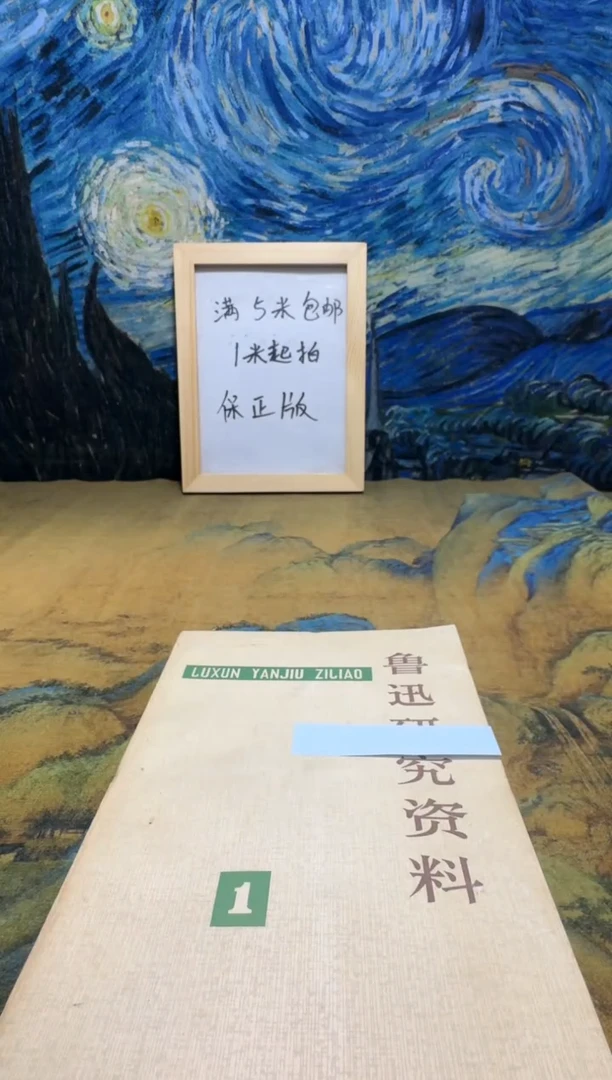 满5米包邮
1米起拍
保正版
LUXUN YANJIU ZILIAO
鲁迅研究资料
1